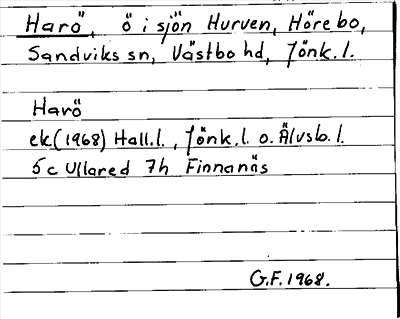 Harö, ö i sjön Hurven, Hörebo,
Sandviks sn, Västbo hd, Jönk.l.
Harö
ek(1968) Hall.l., Jönk.l. o. Älvsb.l.
5c Ullared 7h Finnanäs
G.F. 1968.